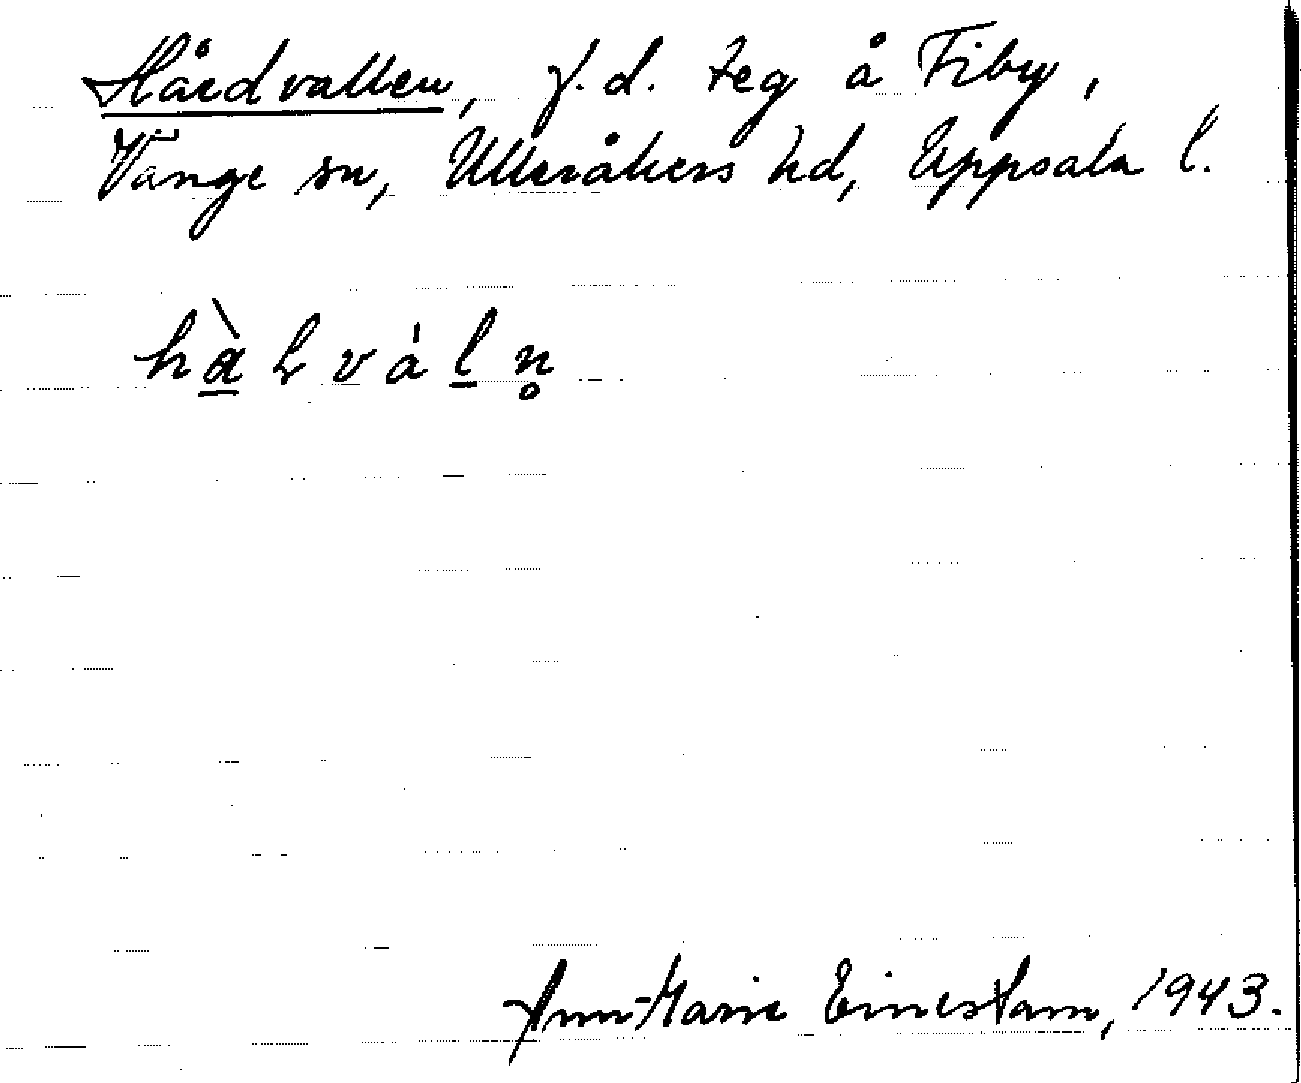 Hårdvallen, f.d. teg å Fiby,
Vänge sn, Ulleråkers hd, Uppsala l.
hàlválṇ
Ann-Marie Einestam, 1943.